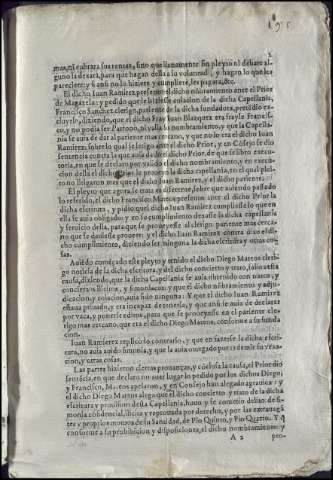 2
mas, ni cobrara sus rentas, sino que llanamente sin pleyto ni debate alguno
la dexará, para que hagan della a su voluntad, y hagan lo que les
pareciere; y si ansi no lo hiziere y cumpliere, les pagará, &c.
El dicho Iuan Ramirez presentò el dicho nõbramiento ante el Prior
de Magazela: y pedido que se le hiziesse colacion de la dicha Capellania,
Francisco Sanchez clerigo, pariente de la dicha fundadora, pretédio excluyrlo,
diziendo, que el dicho Fray Iuan Blazquez era frayle Francisco,
y no podia ser Patron, ni valia su nombramiento, y que la Capellania
se auia de dar al pariente mas cercano, y que no lo era el dicho Iuan
Ramirez, sobre lo qual se litigò ante el dicho Prior, y en Cósejo se dio
sentencia contra la que auia dado el dicho Prior, de que se libró executoria,
en que se declarò por valido el dicho nombramiento, y en execucion
della el dicho Prior le proueyò la dicha capellania, en el qual pleyto
no litigaron mas que el dicho Iuan Ramirez, y el dicho pariente
El pleyto que agora se trata es diferente, sobre que auiendo passado
lo referido, el dicho Francisco Mateos presentò ante el dicho Prior la
dicha escritura, y pidio que el dicho Iuan Ramirez cumpliesse lo que en
ella se auia obligado, y en su cumplimiento dexasse la dicha capellania
y seruicio della, para que se proueyesse al clerigo pariente mas cercano
que se deuiesse proueer. y el dicho Iuan Ramirez contradixo el dicho
cumplimiento, diziendo ser ninguna la dicha escritura y otras cosas.
Auiédo comẽçado este pleyto y tenido el dicho Diego Mateos clerigo
noticia de la dicha escritura, y del dicho concierto y trato, salio a esta
causa, diziendo, que la dicha Capellania se auia obtenido con trato, y
concierto ilicito, y simoniaco: y que el dicho nõbramiento y adjudicacion,
y colacion, auia sido ninguna: Y que el dicho Iuan Ramirez
estaua priuado, y era incapaz de tenerla, y que ansi se auia de declarar
por vaca, y ponerse edictos, para que se proueyesse en el pariente clerigo
mas cercano, que era el dicho Diego Mateos, conforme a su fundacion.
Iuan Ramirez replicò lo contrario, y que en hazerse la dicha escritura,
no auia auido simonia, y que la auia otorgado por redemir su vexacion,
y otras cosas.
Las partes hizieron ciertas prouanças, y cóclusa la causa, el Prior dio
sentécia, en que declarò no auer lugar lo pedido por los dichos Diego,
y Francisco Mateos apelaron, y en Consejo han alegado agrauios: y
el dicho Diego Mateos alega que el dicho concierto, y trato de la dicha
escritura y prouision de la Capellania, huuo, y se cometio delito de simonia
confidencial, ilicita y reprouada por derecho, y por las extrauagátes
y proprios motus de su Santidad, de Pio Quinto, y Pio Quarto. Y q̃
conforme a su prohibicion y disposiciones, el dicho nombramiento y
A 2
pro-